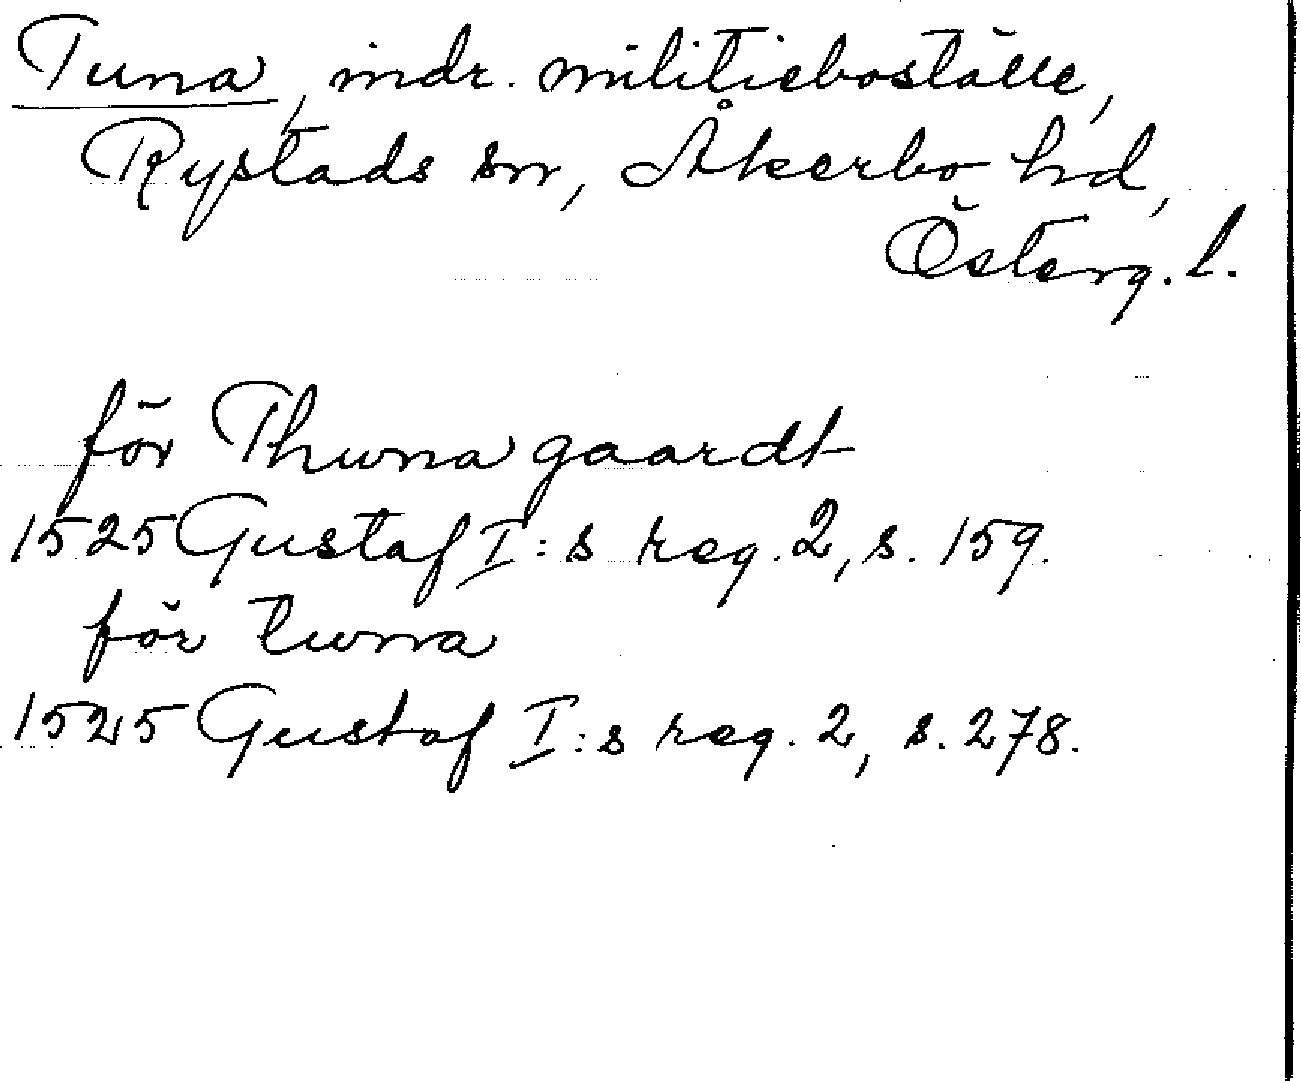 Tuna, indr. militieboställe,
Rystads sn, Åkerbo hd,
Österg. l.
för Thuna gaardt
1525 Gustaf I:s reg. 2, s. 159.
för tuna
1525 Gustaf I:s reg. 2, s. 278.